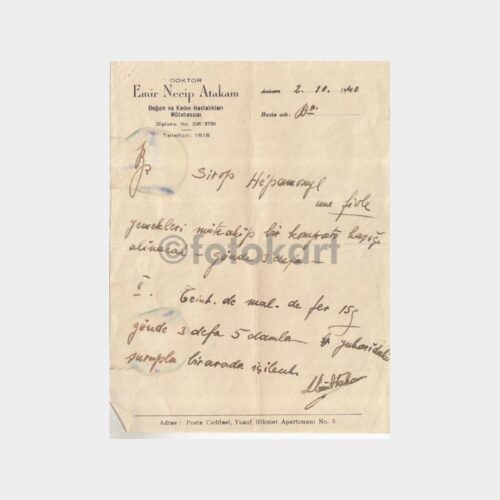 DOKTOR
Emir Necip Atakam
Doğum ve Kadın Hastalıkları
Mütehassısı
Diploma No. 296/3766
Telefon: 1616
Ankara 2. 10. 1940
Hasta adı: Bn.
Sirop Hépamoxyl
une fiole
yemekleri müteakip bir komposto kaşığı
alınacak günde 3 defa
©fotokart
II. Teint. de mal. de fer 15 g
günde 3 defa 5 damla yukarıdaki
şurupla bir arada içilecek
Adres: Posta Caddesi, Yusuf Hikmet Apartımanı No. 3